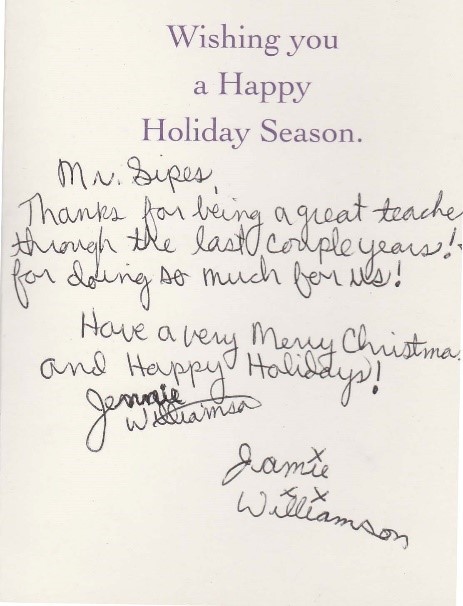 Wishing you
a Happy
Holiday Season.
Mr. Sipes,
Thanks for being a great teache
through the last couple years! +
for doing so much for us!
Have a very Merry Christma
and Happy Holidays!
Jennie
Williamson
Jamie
Williamson